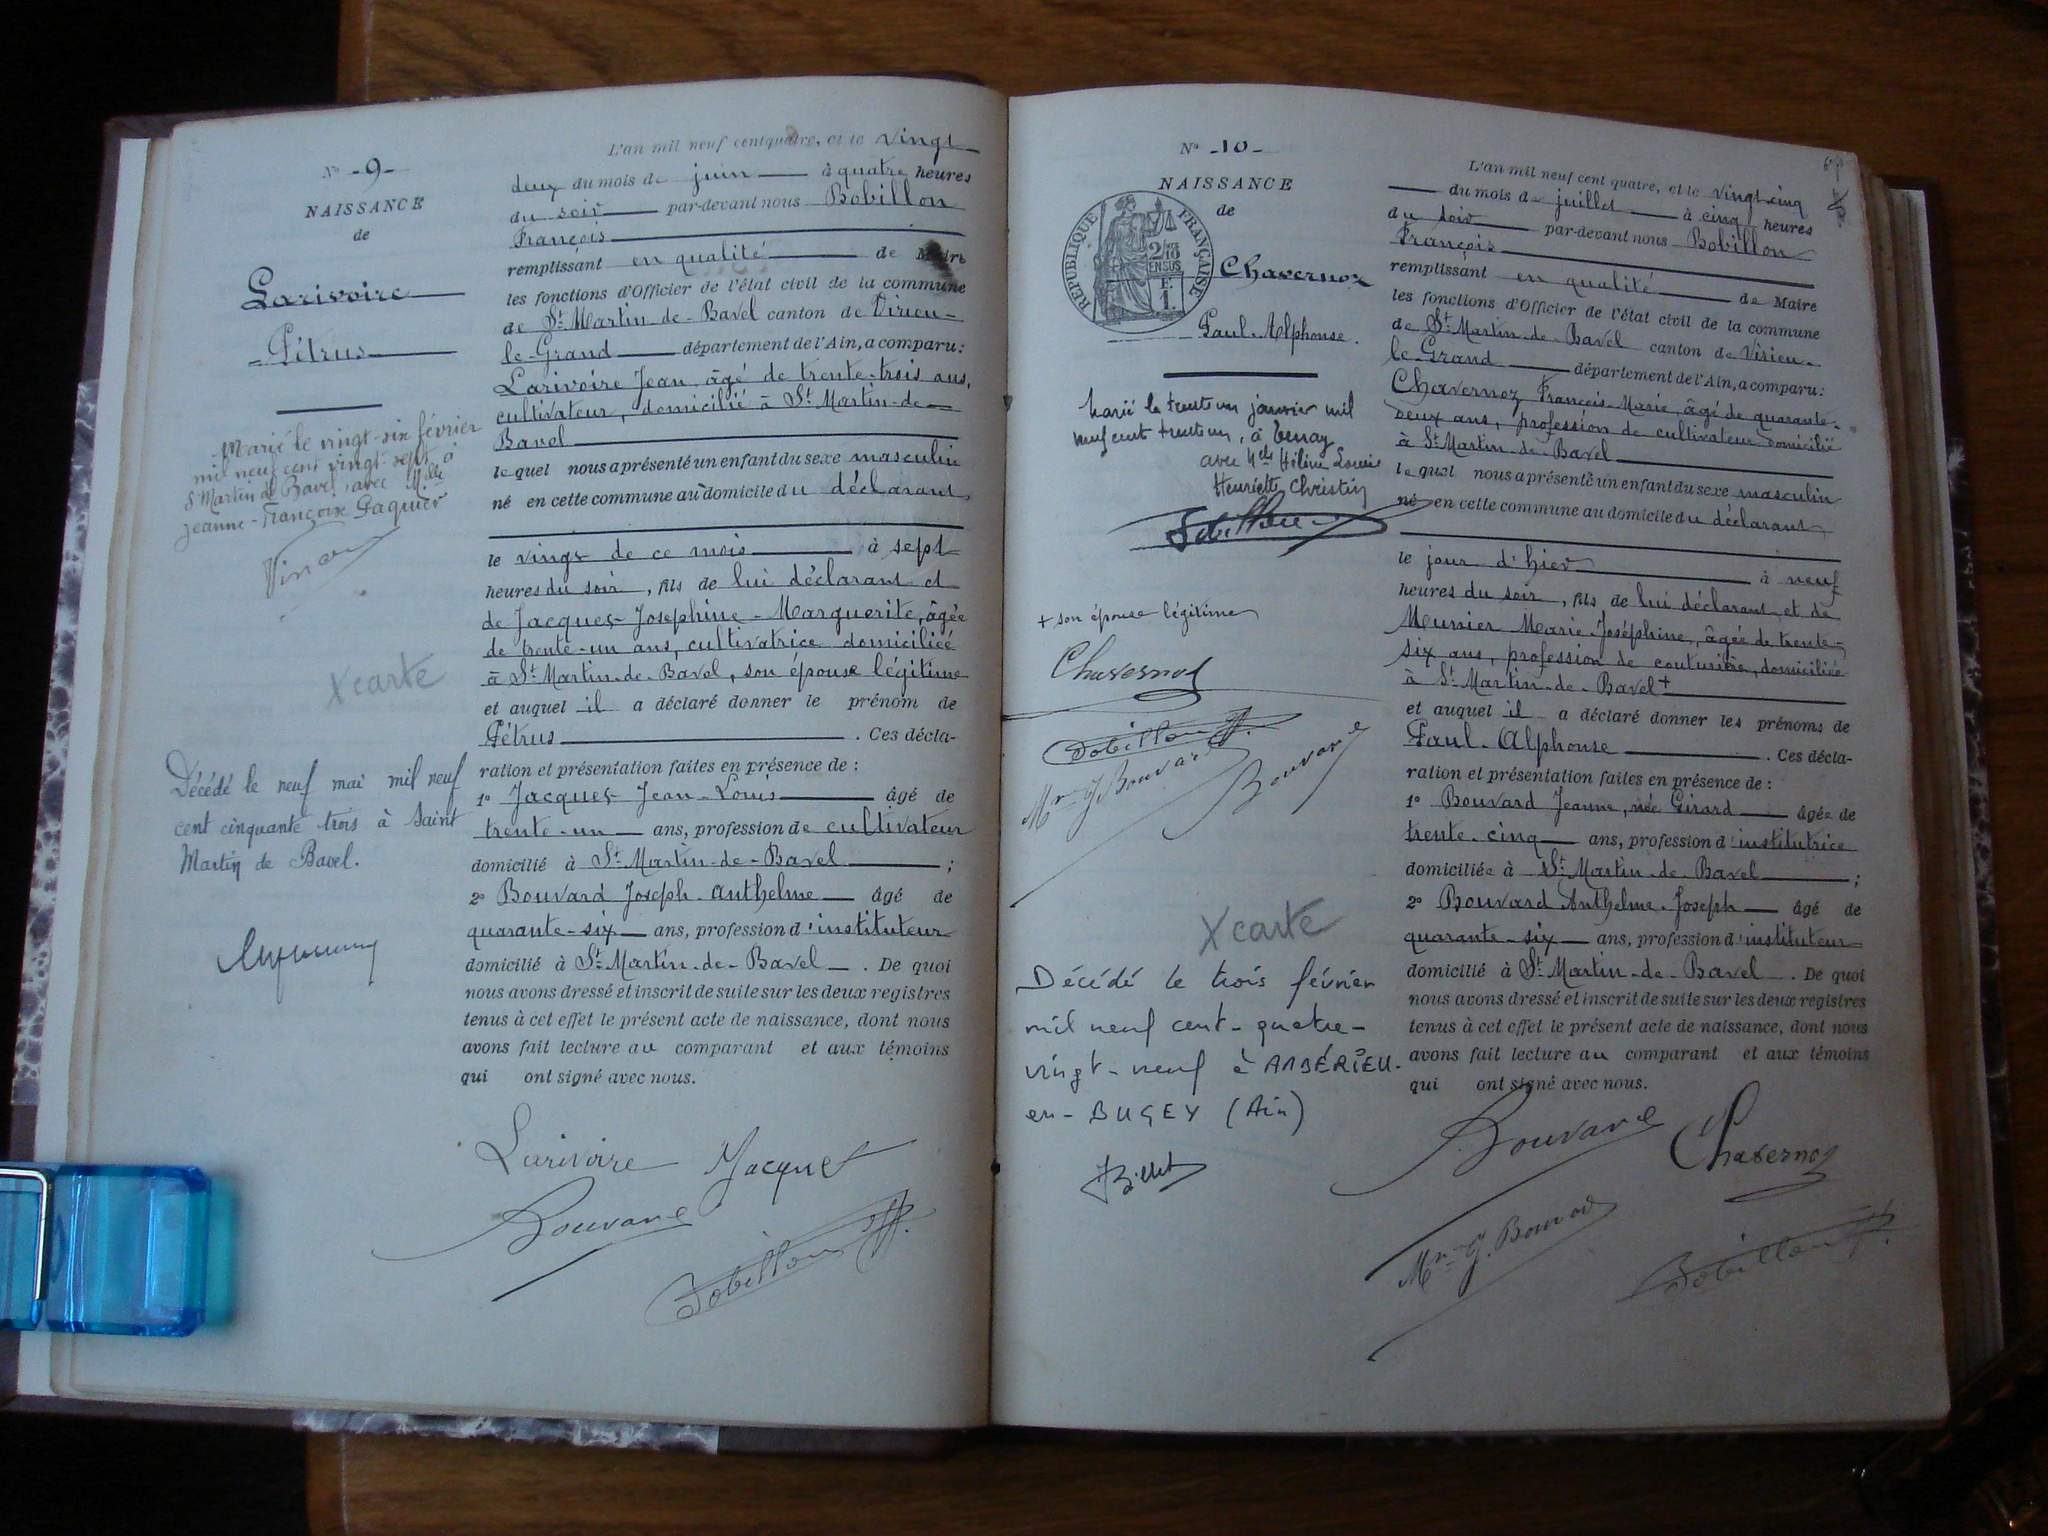 N° 9
NAISSANCE
de
Larivoire
Pétrus
Marié le vingt-six février
mil neuf cent vingt-sept à
St Martin de Bavel avec Mlle
Jeanne-Françoise Paquier
X carte
Décédé le neuf mai mil neuf
cent cinquante trois à Saint
Martin de Bavel.
L'an mil neuf cent quatre, et le vingt
deux du mois de juin à quatre heures
du soir par-devant nous Bobillon
François
remplissant en qualité de Maire
les fonctions d'Officier de l'état civil de la commune
de St Martin-de-Bavel canton de Virieu-
le-Grand département de l'Ain, a comparu :
Larivoire Jean, âgé de trente-trois ans,
cultivateur, domicilié à St Martin-de-
Bavel
lequel nous a présenté un enfant du sexe masculin
né en cette commune au domicile du déclarant
le vingt de ce mois à sept
heures du soir, fils de lui déclarant et
de Jacquet Josephine-Marguerite, âgée
de trente-un ans, cultivatrice domiciliée
à St Martin-de-Bavel, son épouse légitime
et auquel il a déclaré donner le prénom de
Pétrus. Ces décla-
ration et présentation faites en présence de :
1° Jacquet Jean-Louis âgé de
trente-un ans, profession de cultivateur
domicilié à St Martin-de-Bavel ;
2° Bouvard Joseph-Anthelme âgé de
quarante-six ans, profession d'instituteur
domicilié à St Martin-de-Bavel. De quoi
nous avons dressé et inscrit de suite sur les deux registres
tenus à cet effet le présent acte de naissance, dont nous
avons fait lecture au comparant et aux témoins
qui ont signé avec nous.
Larivoire Jacquet
Bouvard
Bobillon
N° 10
NAISSANCE
de
REPUBLIQUE FRANÇAISE
2/10
EN SUS
F.
1.
Chavernoz
Paul-Alphonse.
Marié le trente un janvier mil
neuf cent trente un, à Tenay
avec Mlle Hélène Louise
Henriette Christin
Bobillon
+ son épouse légitime
Chavernoz
Bobillon
Mme J. Bouvard
Bouvard
X carte
Décédé le trois février
mil neuf cent-quatre-
vingt-neuf à AMBÉRIEU-
en-BUGEY (Ain)
Billet
L'an mil neuf cent quatre, et le vingt-cinq
du mois de juillet à cinq heures
du soir par-devant nous Bobillon
François
remplissant en qualité de Maire
les fonctions d'Officier de l'état civil de la commune
de St Martin-de-Bavel canton de Virieu-
le-Grand département de l'Ain, a comparu :
Chavernoz François-Marie, âgé de quarante-
deux ans, profession de cultivateur domicilié
à St Martin-de-Bavel
lequel nous a présenté un enfant du sexe masculin
né en cette commune au domicile du déclarant
le jour d'hier à neuf
heures du soir, fils de lui déclarant et de
Meunier Marie-Joséphine, âgée de trente-
six ans, profession de couturière, domiciliée
à St Martin-de-Bavel +
et auquel il a déclaré donner les prénoms de
Paul-Alphonse. Ces décla-
ration et présentation faites en présence de :
1° Bouvard Jeanne, née Girard âgée de
trente-cinq ans, profession d'institutrice
domiciliée à St Martin-de-Bavel ;
2° Bouvard Anthelme-Joseph âgé de
quarante-six ans, profession d'instituteur
domicilié à St Martin-de-Bavel. De quoi
nous avons dressé et inscrit de suite sur les deux registres
tenus à cet effet le présent acte de naissance, dont nous
avons fait lecture au comparant et aux témoins
qui ont signé avec nous.
Bouvard Chavernoz
Mme J. Bouvard
Bobillon